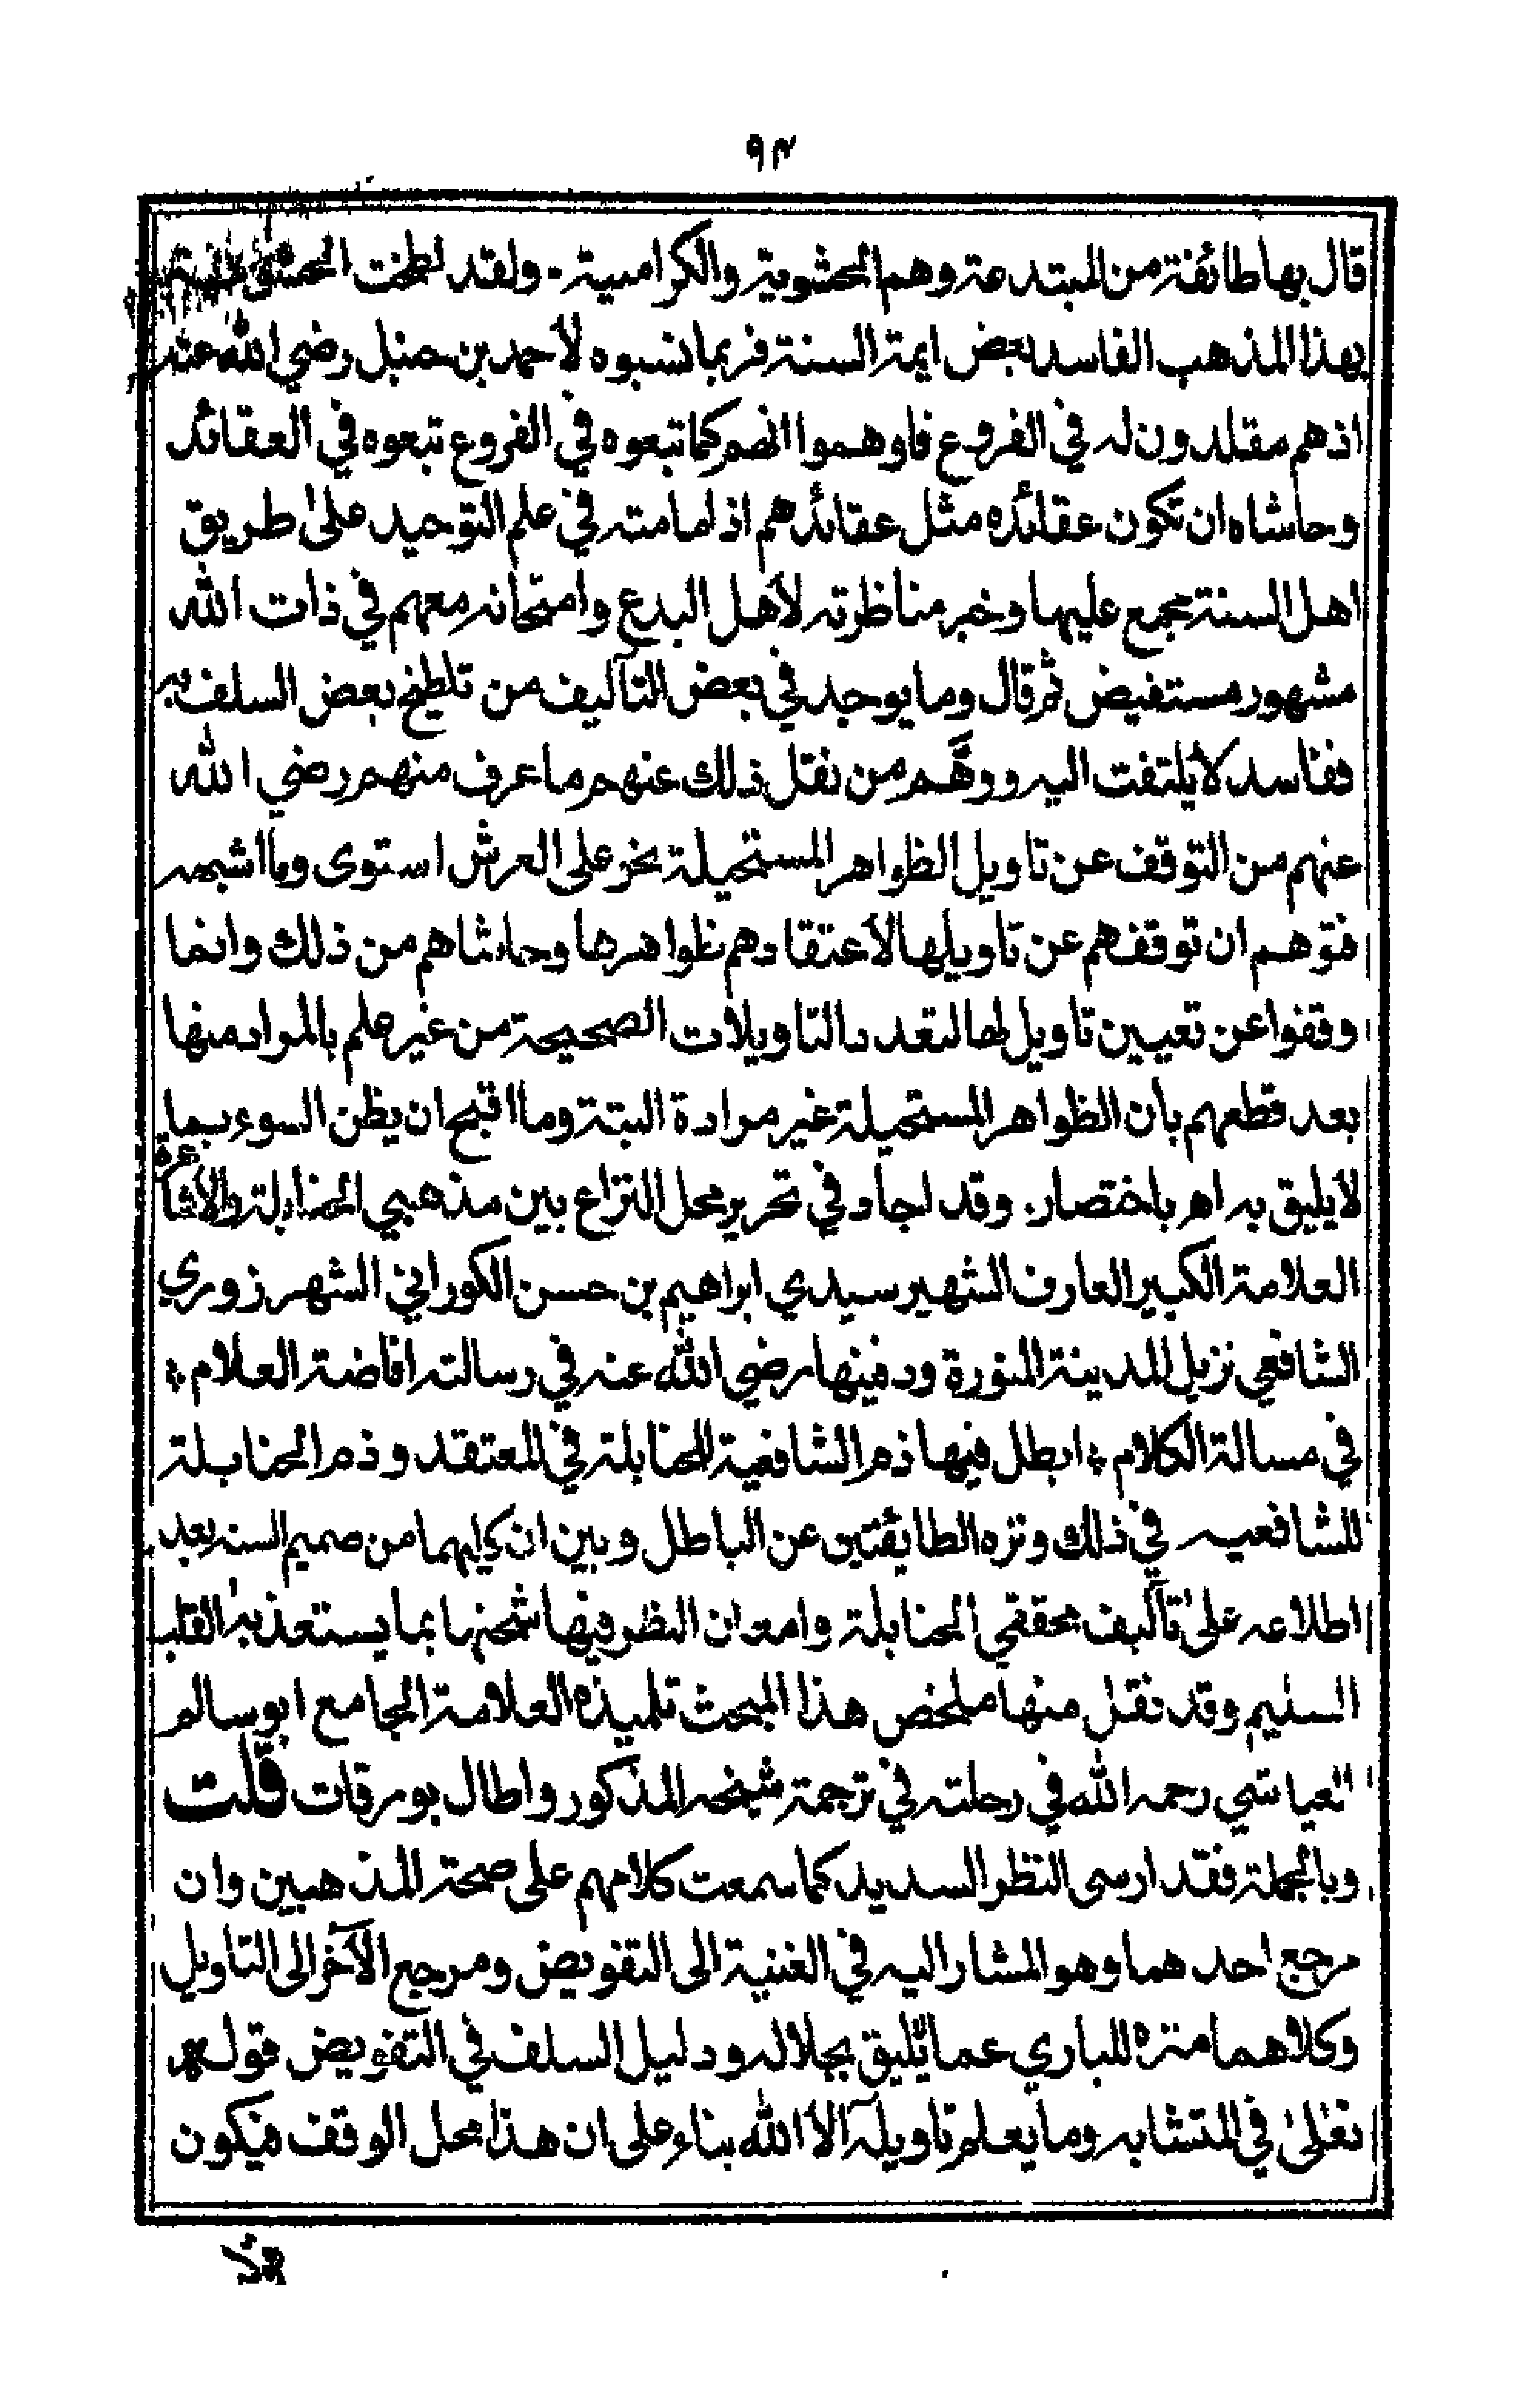 ٩٣
قال بها طائفة من المبتدعة وهم الحشوية والكرامية - ولقد لطخت الحشوية
بهذا المذهب الفاسد بعض ايمة السنة فربما نسبوه لأحمد بن حنبل رضي الله عنه
اذ هم مقلدون له في الفروع فاوهموا انهم كما تبعوه في الفروع تبعوه في العقائد
وحاشاه ان تكون عقائده مثل عقائدهم اذ امامته في علم التوحيد على طريق
اهل السنة مجمع عليها وخبر مناظرته لأهل البدع وامتحانه معهم في ذات الله
مشهور مستفيض ثم قال وما يوجد في بعض التآليف من تلطيخ بعض السلف به
ففاسد لا يلتفت اليه ووهَّم من نقل ذلك عنهم ما عرف منهم رضي الله
عنهم من التوقف عن تاويل الظواهر المستحيلة نحو على العرش استوى وما اشبهه
فتوهم ان توقفهم عن تاويلها لاعتقادهم ظواهرها وحاشاهم من ذلك وانما
وقفوا عن تعيين تاويل لها لتعدد التاويلات الصحيحة من غير علم بالمراد منها
بعد قطعهم بأن الظواهر المستحيلة غير مرادة البتة وما اقبح ان يظن السوء بما
لا يليق به اهـ باختصار. وقد اجاد في تحرير محل النزاع بين مذهبي الحنابلة والأشاعرة
العلامة الكبير العارف الشهير سيدي ابراهيم بن حسن الكوراني الشهرزوري
الشافعي نزيل المدينة المنورة ودفينها رضي الله عنه في رسالته افاضة العلام ؛
في مسالة الكلام ؛ ابطل فيها ذم الشافعية للحنابلة في المعتقد وذم الحنابلة
للشافعيه في ذلك ونزه الطايفتين عن الباطل وبين ان كليهما من صميم السنه بعد
اطلاعه على تآليف محققي الحنابلة وامعان النظر فيها شحنها بما يستعذبه القلب
السليم وقد نقل منها ملخص هذا المبحث تلميذه العلامة الجامع ابو سالم
العياشي رحمه الله في رحلته في ترجمة شيخه المذكور واطال بورقات قلت
وبالجملة فقد ارسى النظر السديد كما سمعت كلامهم على صحة المذهبين وان
مرجع احدهما وهو المشار اليه في الغنية الى التفويض ومرجع الآخر الى التاويل
وكلاهما منزه للباري عما يليق بجلاله ودليل السلف في التفويض قوله
تعالى في المتشابه وما يعلم تاويله الا الله بناء على ان هذا محل الوقف فيكون